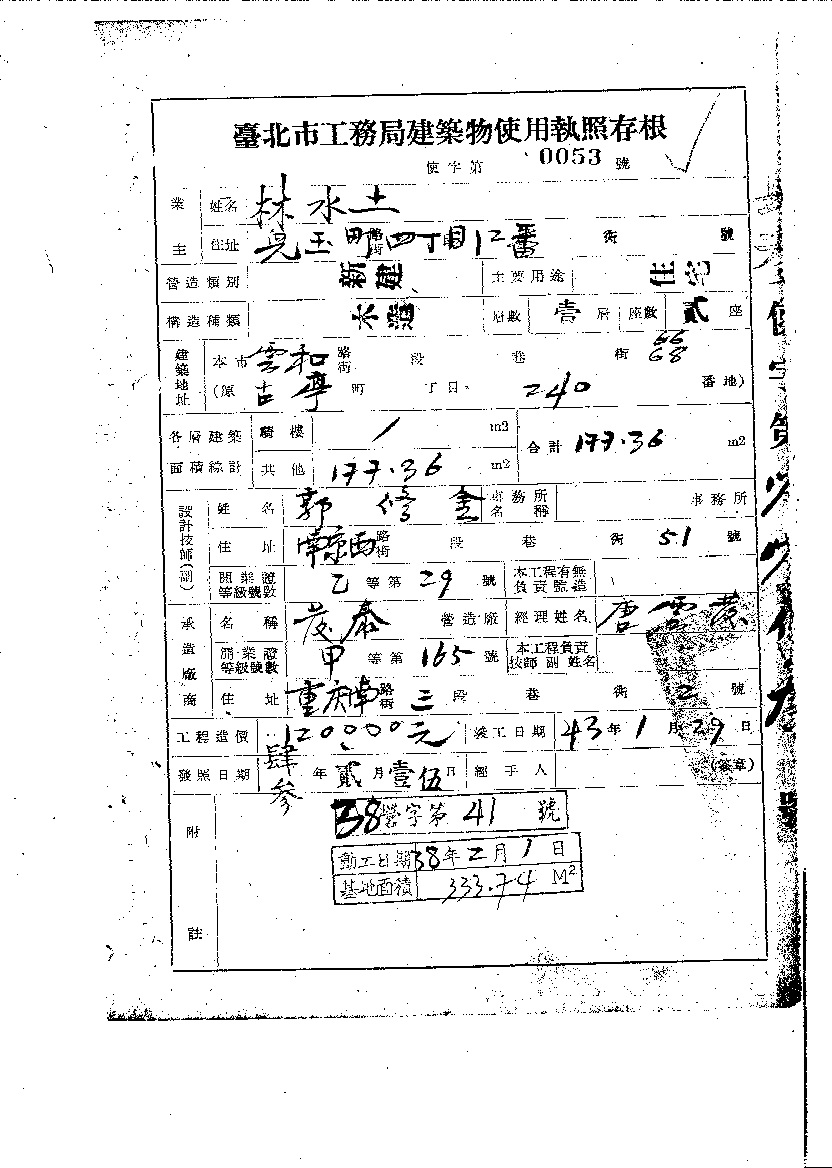 臺北市工務局建築物使用執照存根
使字第 0053 號
業主 姓名 林水土
住址 兒玉町路街四丁目12番 街 號
營造類別 新建 主要用途 住宅
構造種類 木造 層數 壹層 座數 貳座
建築地址 本市 雲和路街 段 巷 街 66 68
(原 古亭町 丁目 240 番地)
各層建築面積綜計 騎樓 / m2 合計 177.36 m2
其他 177.36 m2
設計技師(副) 姓名 郭修金 事務所名稱 事務所
住址 南京西路街 段 巷 街 51 號
開業證等級號數 乙等第 29 號 本工程有無負責監造
承造廠商 名稱 茂泰 營造廠 經理姓名 唐雲茂
開業證等級號數 甲等第 165 號 本工程負責技師副姓名
住址 重慶南路街 三段 巷 街 2 號
工程造價 120000元 竣工日期 43年1月29日
發照日期 肆參年貳月壹伍日 經手人 (簽章)
附註
38營字第 41 號
動工日期 38年2月1日
基地面積 333.74 M²